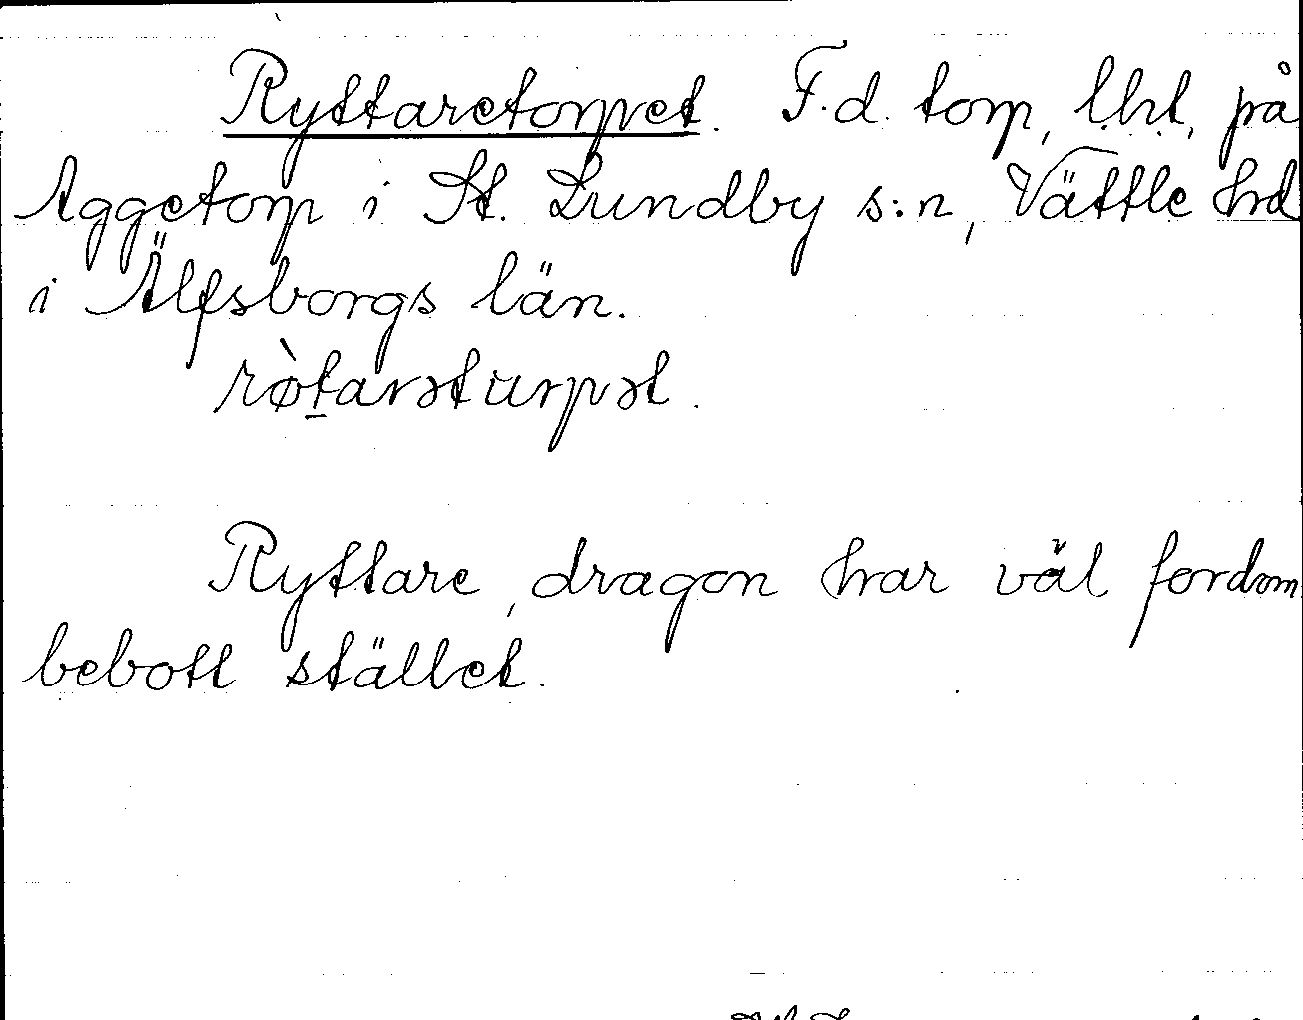 Ryttaretorpet. F.d. torp, lht, på
Aggetorp i St. Lundby s:n, Vättle hd
i Älfsborgs län.
rø̀tarətɯrpət.
Ryttare, dragon har väl fordom
bebott stället.